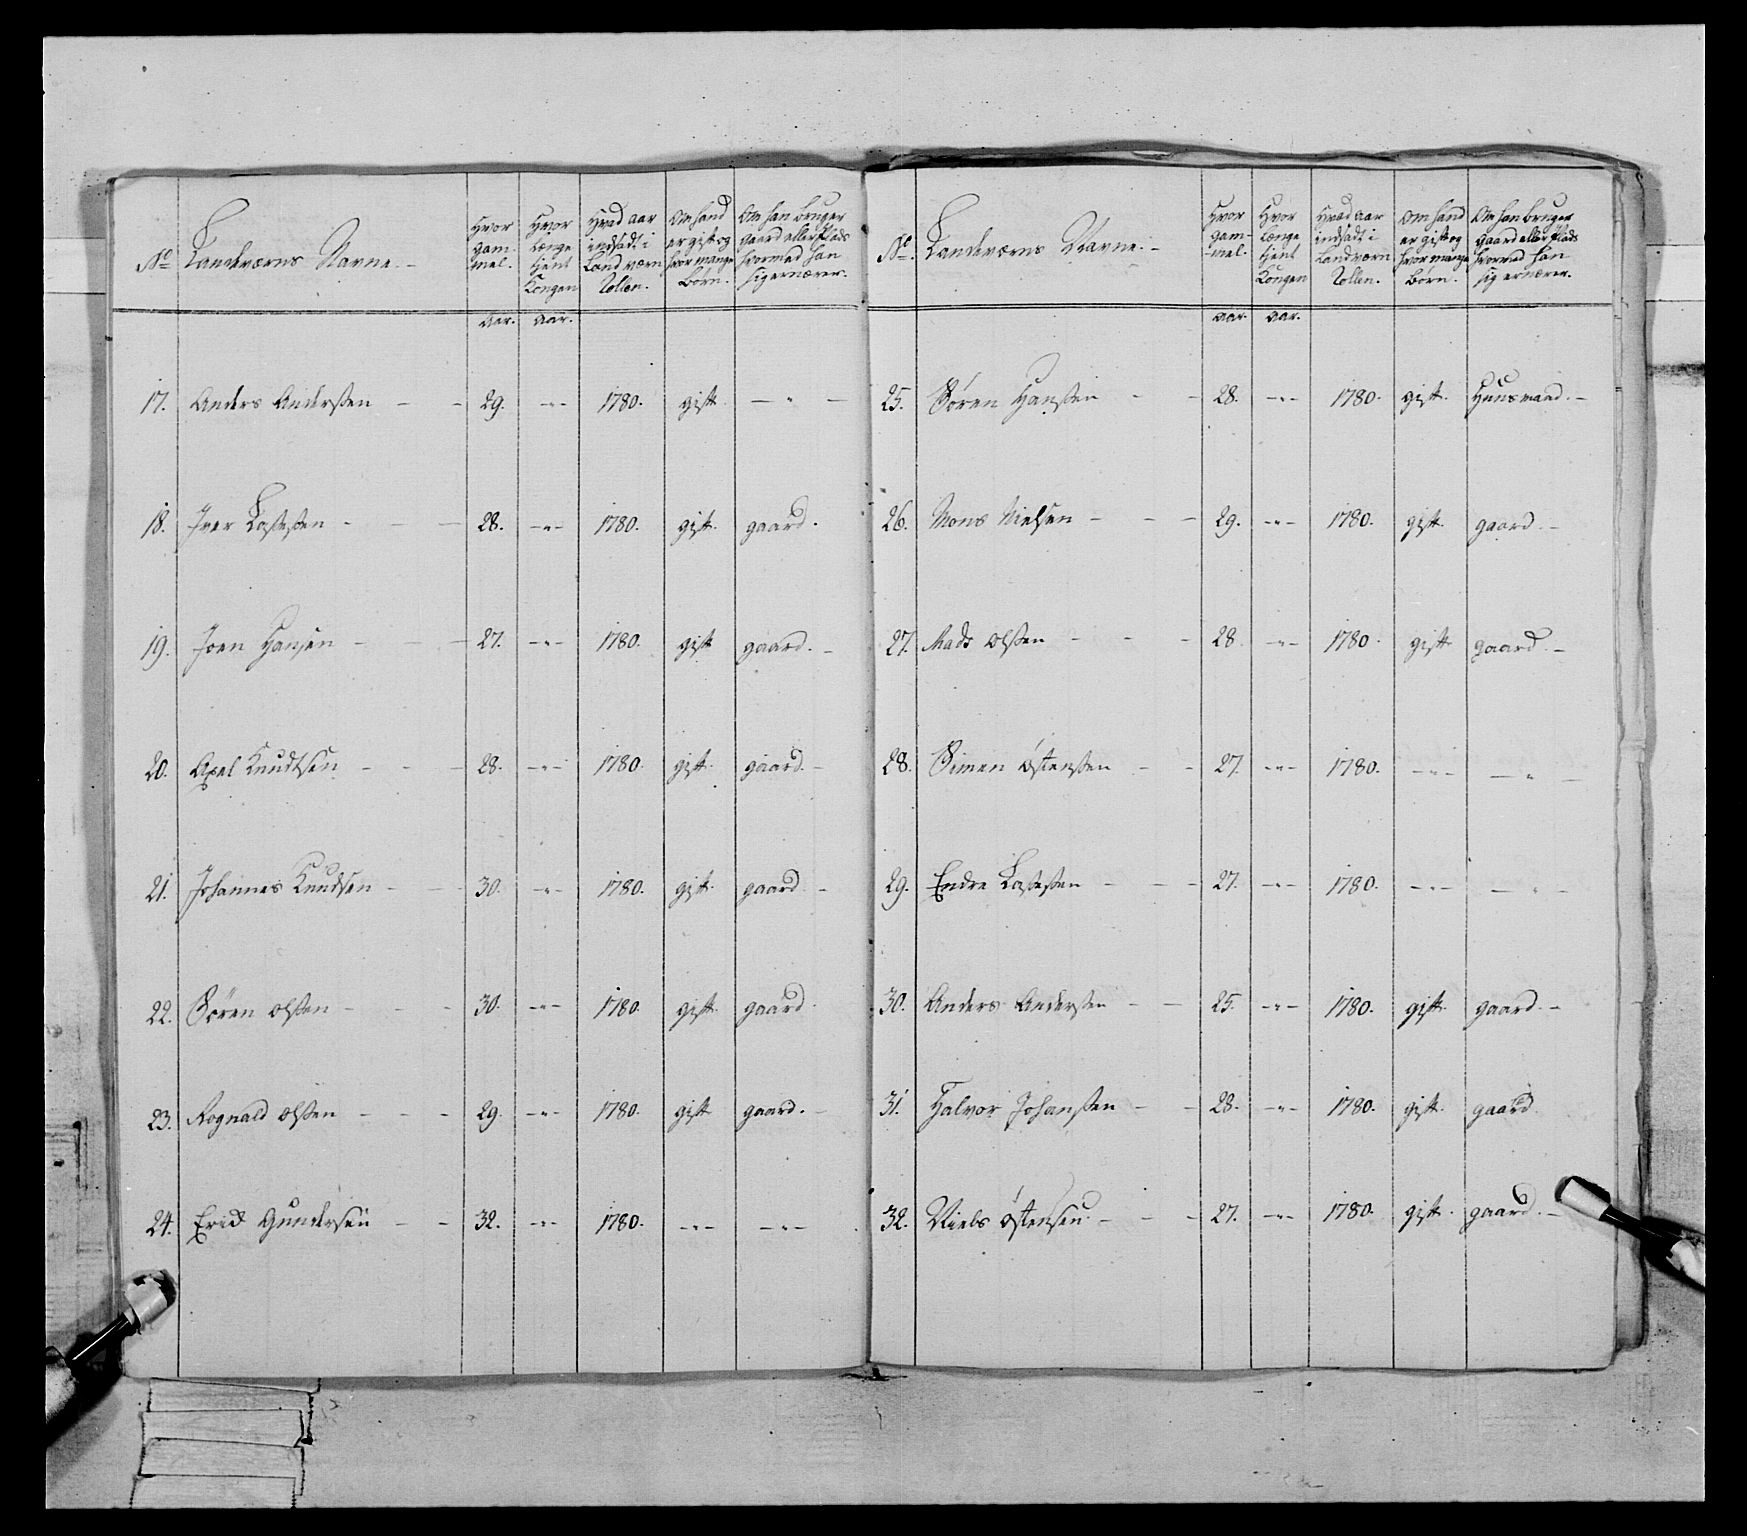 No
Landværns Navne. –
Hvor
gam-
mel.
Hvor
længe
tient
Kongen
Hvad aar
indsadt i
Land værn
Rollen.
Om hand
er gift og
hvor mange
Børn.
Om han bruger
gaard eller Plads
hvormed han
sig ernærer.
aar. aar.
17. Anders Anderßen – – 29. -"- 1780. gift – " –
18. Iver Laßeßen – – – 28. -"- 1780. gift. gaard.
19. Joen Hansen – – – 27. -"- 1780. gift gaard. –
20. Axel Knudtsen – – – 28. -"- 1780. gift. gaard. –
21. Johannes Knudsen – – – 30. -"- 1780. gift. gaard –
22. Sören Olßen – – – 30. -"- 1780. gift. gaard
23. Rognald Olßen – – – 29. -"- 1780. gift gaard. –
24. Erick Gundersen – – 32. -"- 1780. -"- -"-
No.
Landværns Navne. –
Hvor
gam-
mel.
Hvor
længe
tient
Kongen
Hvad aar
indsadt i
Landværn
Rollen.
Om hand
er gift og
hvor mange
Børn.
Om han bruger
gaard eller Plads
hvormed han
sig ernærer.
aar. aar.
25. Sören Hanßen – – 28. -"- 1780. gift. Huusmand. –
26. Mons Nielsen – – – 29. -"- 1780. gift gaard. –
27. Mads Olßen – – – 28. -"- 1780. gift. gaard. –
28. Simen Østenßen – – 27. -"- 1780. -"- – " –
29. Endre Laßeßen – – – 27. -"- 1780. -"- – " –
30. Anders Anderßen – – 25. -"- 1780. gift. gaard. –
31. Halvor Johanßen – – 28. -"- 1780. gift. gaard
32. Niels Østensen – – – 27. -"- 1780. gift. gaard. –